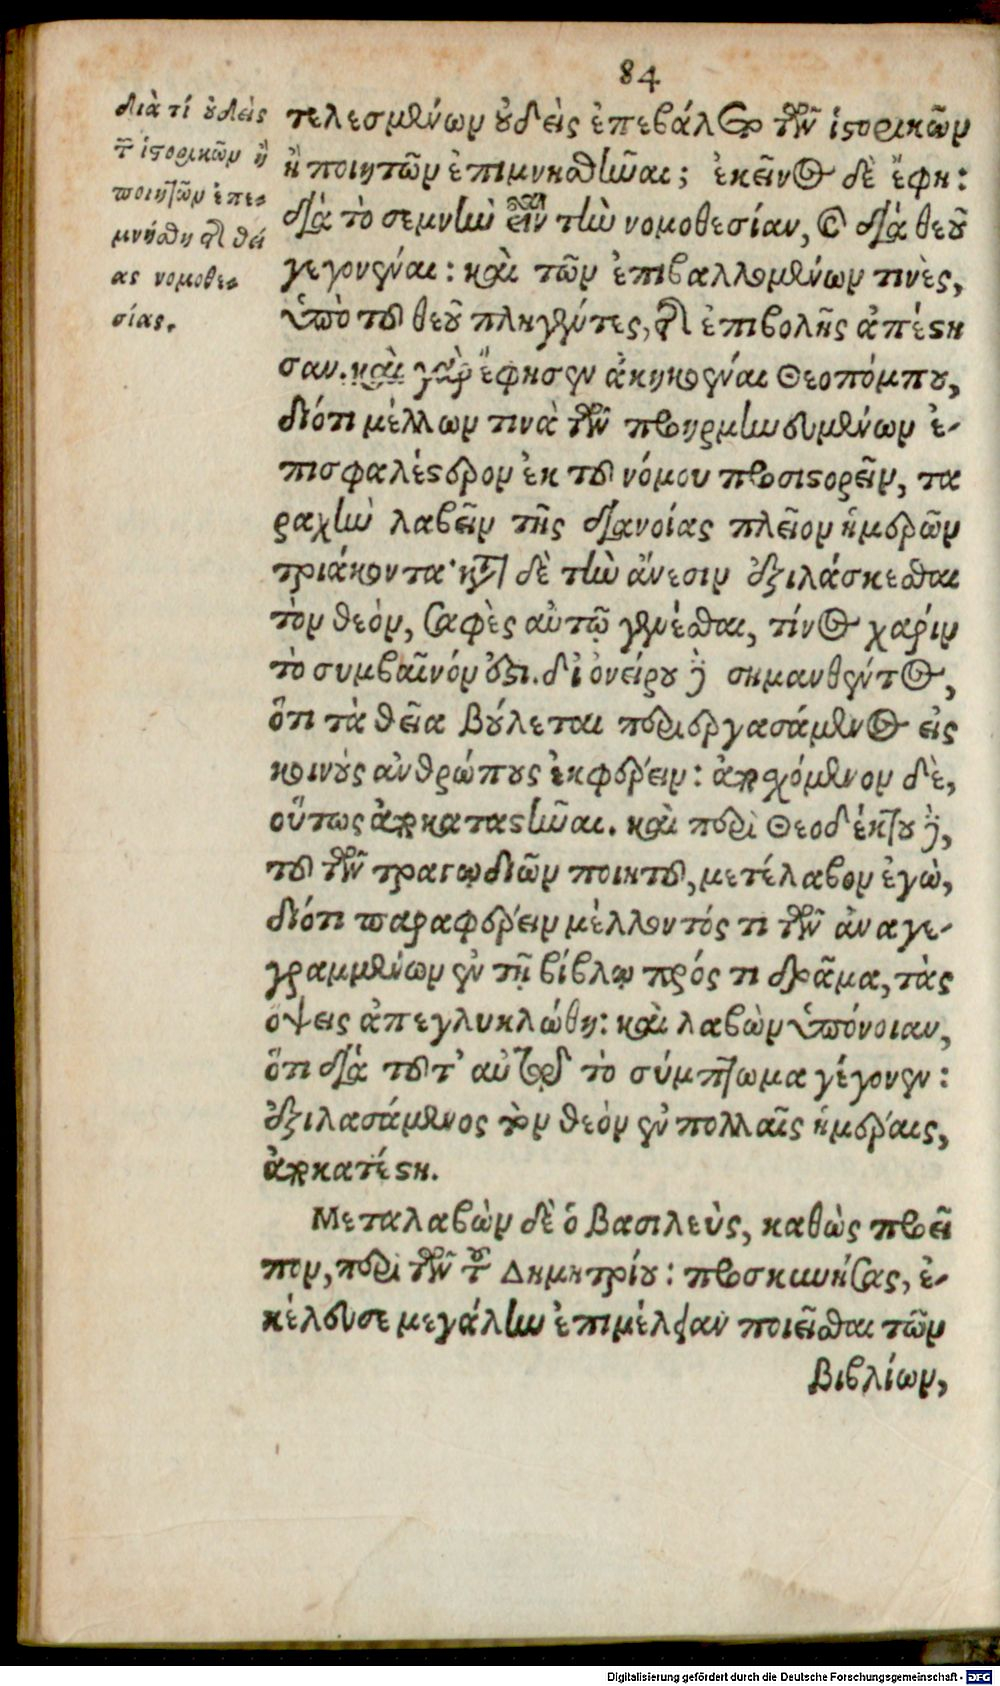 84
διὰ τί οὐδεὶς
τῶν ἱστορικῶν ἢ
ποιητῶν ἐπε-
μνήσθη τῆς θεί
ας νομοθε-
σίας.
τελεσμένων οὐδεὶς ἐπεβάλετο τῶν ἱστορικῶν
ἢ ποιητῶν ἐπιμνησθῆναι; ἐκεῖνος δὲ ἔφη:
διὰ τὸ σεμνὴν εἶναι τὴν νομοθεσίαν, καὶ διὰ θεοῦ
γεγονέναι: καὶ τῶν ἐπιβαλλομένων τινὲς,
ὑπὸ τοῦ θεοῦ πληγέντες, τῆς ἐπιβολῆς ἀπέστη
σαν. καὶ γὰρ ἔφησεν ἀκηκοέναι Θεοπόμπου,
διότι μέλλων τινὰ τῶν προηρμηνευμένων ἐ-
πισφαλέστερον ἐκ τοῦ νόμου προσιστορεῖν, τα
ραχὴν λαβεῖν τῆς διανοίας πλεῖον ἡμερῶν
τριάκοντα· κατὰ δὲ τὴν ἄνεσιν ἐξιλάσκεσθαι
τὸν θεὸν, σαφὲς αὐτῷ γενέσθαι, τίνος χάριν
τὸ συμβαῖνόν ἐστι. δι ὀνείρου δὲ σημανθέντος,
ὅτι τὰ θεῖα βούλεται περιεργασάμενος εἰς
κοινοὺς ἀνθρώπους ἐκφέρειν: ἀποσχόμενον δὲ,
οὕτως ἀποκαταστῆναι. καὶ περὶ Θεοδέκτου δὲ,
τοῦ τῶν τραγῳδιῶν ποιητοῦ, μετέλαβον ἐγὼ,
διότι παραφέρειν μέλλοντός τι τῶν ἀναγε-
γραμμένων ἐν τῇ βίβλῳ πρός τι δρᾶμα, τὰς
ὄψεις ἀπεγλυκλώθη: καὶ λαβὼν ὑπόνοιαν,
ὅτι διὰ τοῦτ' αὐτῷ τὸ σύμπτωμα γέγονεν:
ἐξιλασάμενος τὸν θεὸν ἐν πολλαῖς ἡμέραις,
ἀποκατέστη.
Μεταλαβὼν δὲ ὁ βασιλεὺς, καθὼς προεῖ
πον, περὶ τῶν τοῦ Δημητρίου: προσκυνήσας, ἐ-
κέλευσε μεγάλην ἐπιμέλειαν ποιεῖσθαι τῶν
βιβλίων,
Digitalisierung gefördert durch die Deutsche Forschungsgemeinschaft - DFG